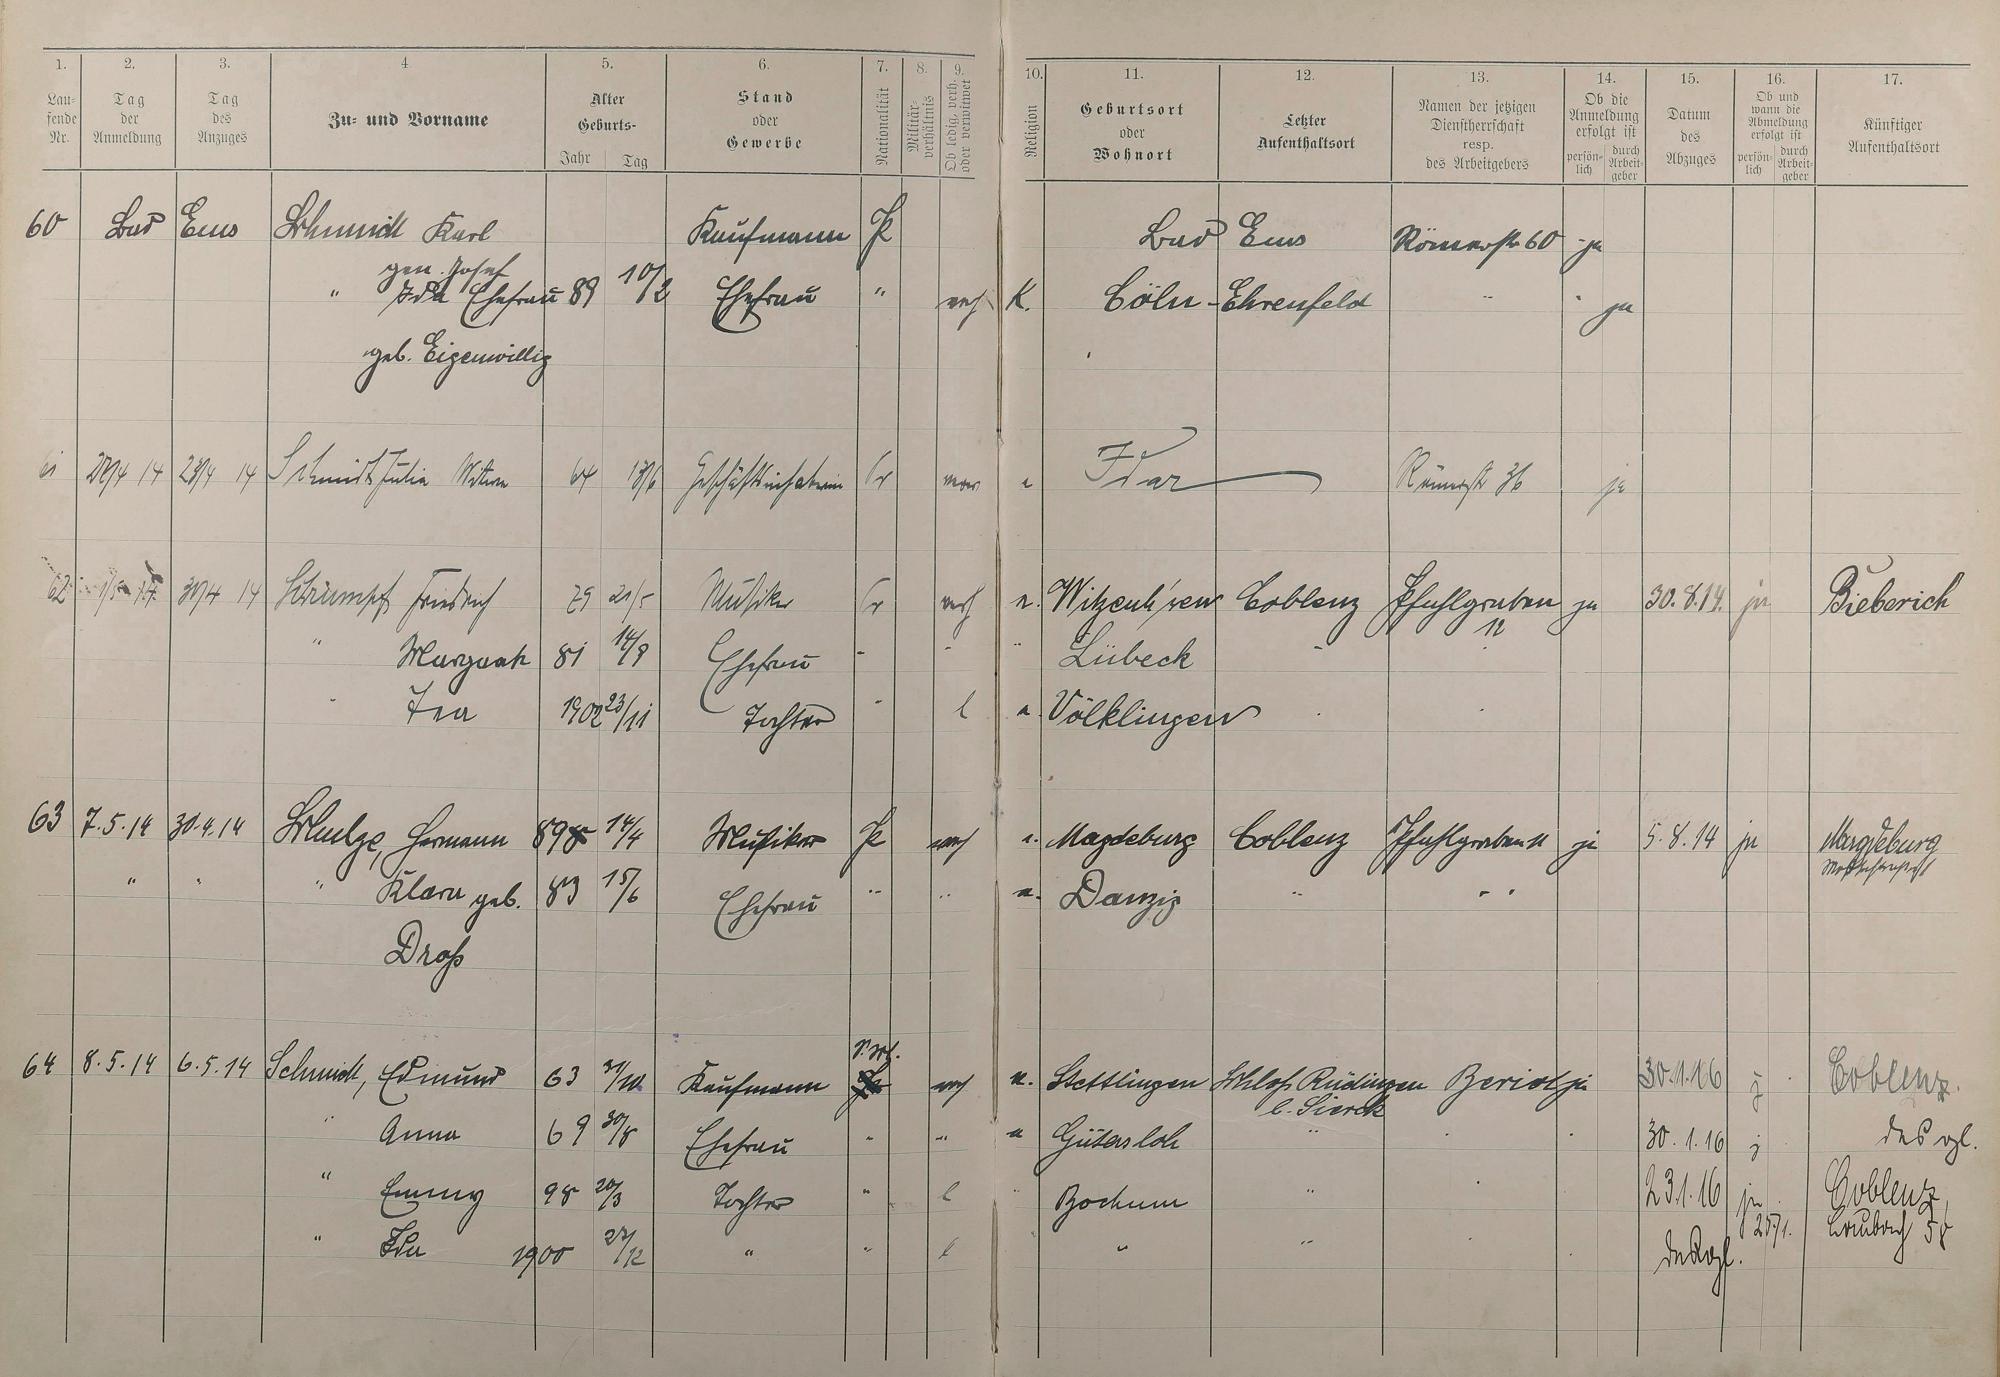 1. 2. 3. 4 5. 6. 7. 8. 9. 10. 11. 12. 13. 14. 15. 16. 17.
Laufende Nr.
Tag der Anmeldung
Tag des Anzuges
Zu- und Vorname
Alter
Geburts-
Jahr Tag
Stand oder Gewerbe
Nationalität
Militärverhältnis
Ob ledig, verh. oder verwitwet
Religion
Geburtsort oder Wohnort
Letzter Aufenthaltsort
Namen der jetzigen Dienstherrschaft resp. des Arbeitgebers
Ob die Anmeldung erfolgt ist
persönlich durch Arbeitgeber
Datum des Abzuges
Ob und wann die Abmeldung erfolgt ist
persönlich durch Arbeitgeber
Künftiger Aufenthaltsort
60 Bad Ems Schmidt Karl Kaufmann Pr Bad Ems Römerstr 60 ja
gen. Josef
" Ida Ehefrau 89 10/2 Ehefrau " verh K. Cöln-Ehrenfeld " " ja
geb. Eigenwillig
61 14 14 Schmidt Julie Witwe 64 Idar Römerstr 36 ja
62 14 30/4 14 Strumpf Friedrich 79 21/5 Musiker Pr verh Coblenz Pfuhlgraben 12 ja 30.8.14. ja Bieberich
" 81 14/9 Ehefrau " " " Lübeck " "
" 1902 23/11 Tochter " l Völklingen " "
63 7.5.14 30.4.14 Schulze, Hermann 89 14/4 Musiker Pr verh Magdeburg Coblenz Pfuhlgraben ja 5.8.14 ja Magdeburg
" " " Klara geb. 83 15/6 Ehefrau " " Danzig " " "
Droß
64 8.5.14 6.5.14 Schmidt, Edmund 63 Kaufmann verh Stettlingen Schloß Rüdingen b. Sierck Beriot ja 30.1.16 j Coblenz.
" Anna 69 30/8 Ehefrau " " Gütersloh " 30.1.16 j desgl.
" Emmy 98 20/3 Tochter " l " Bochum " 23.1.16 ja Coblenz,
25/1. Laubach 58
" Ida 1900 " " l " " desgl.